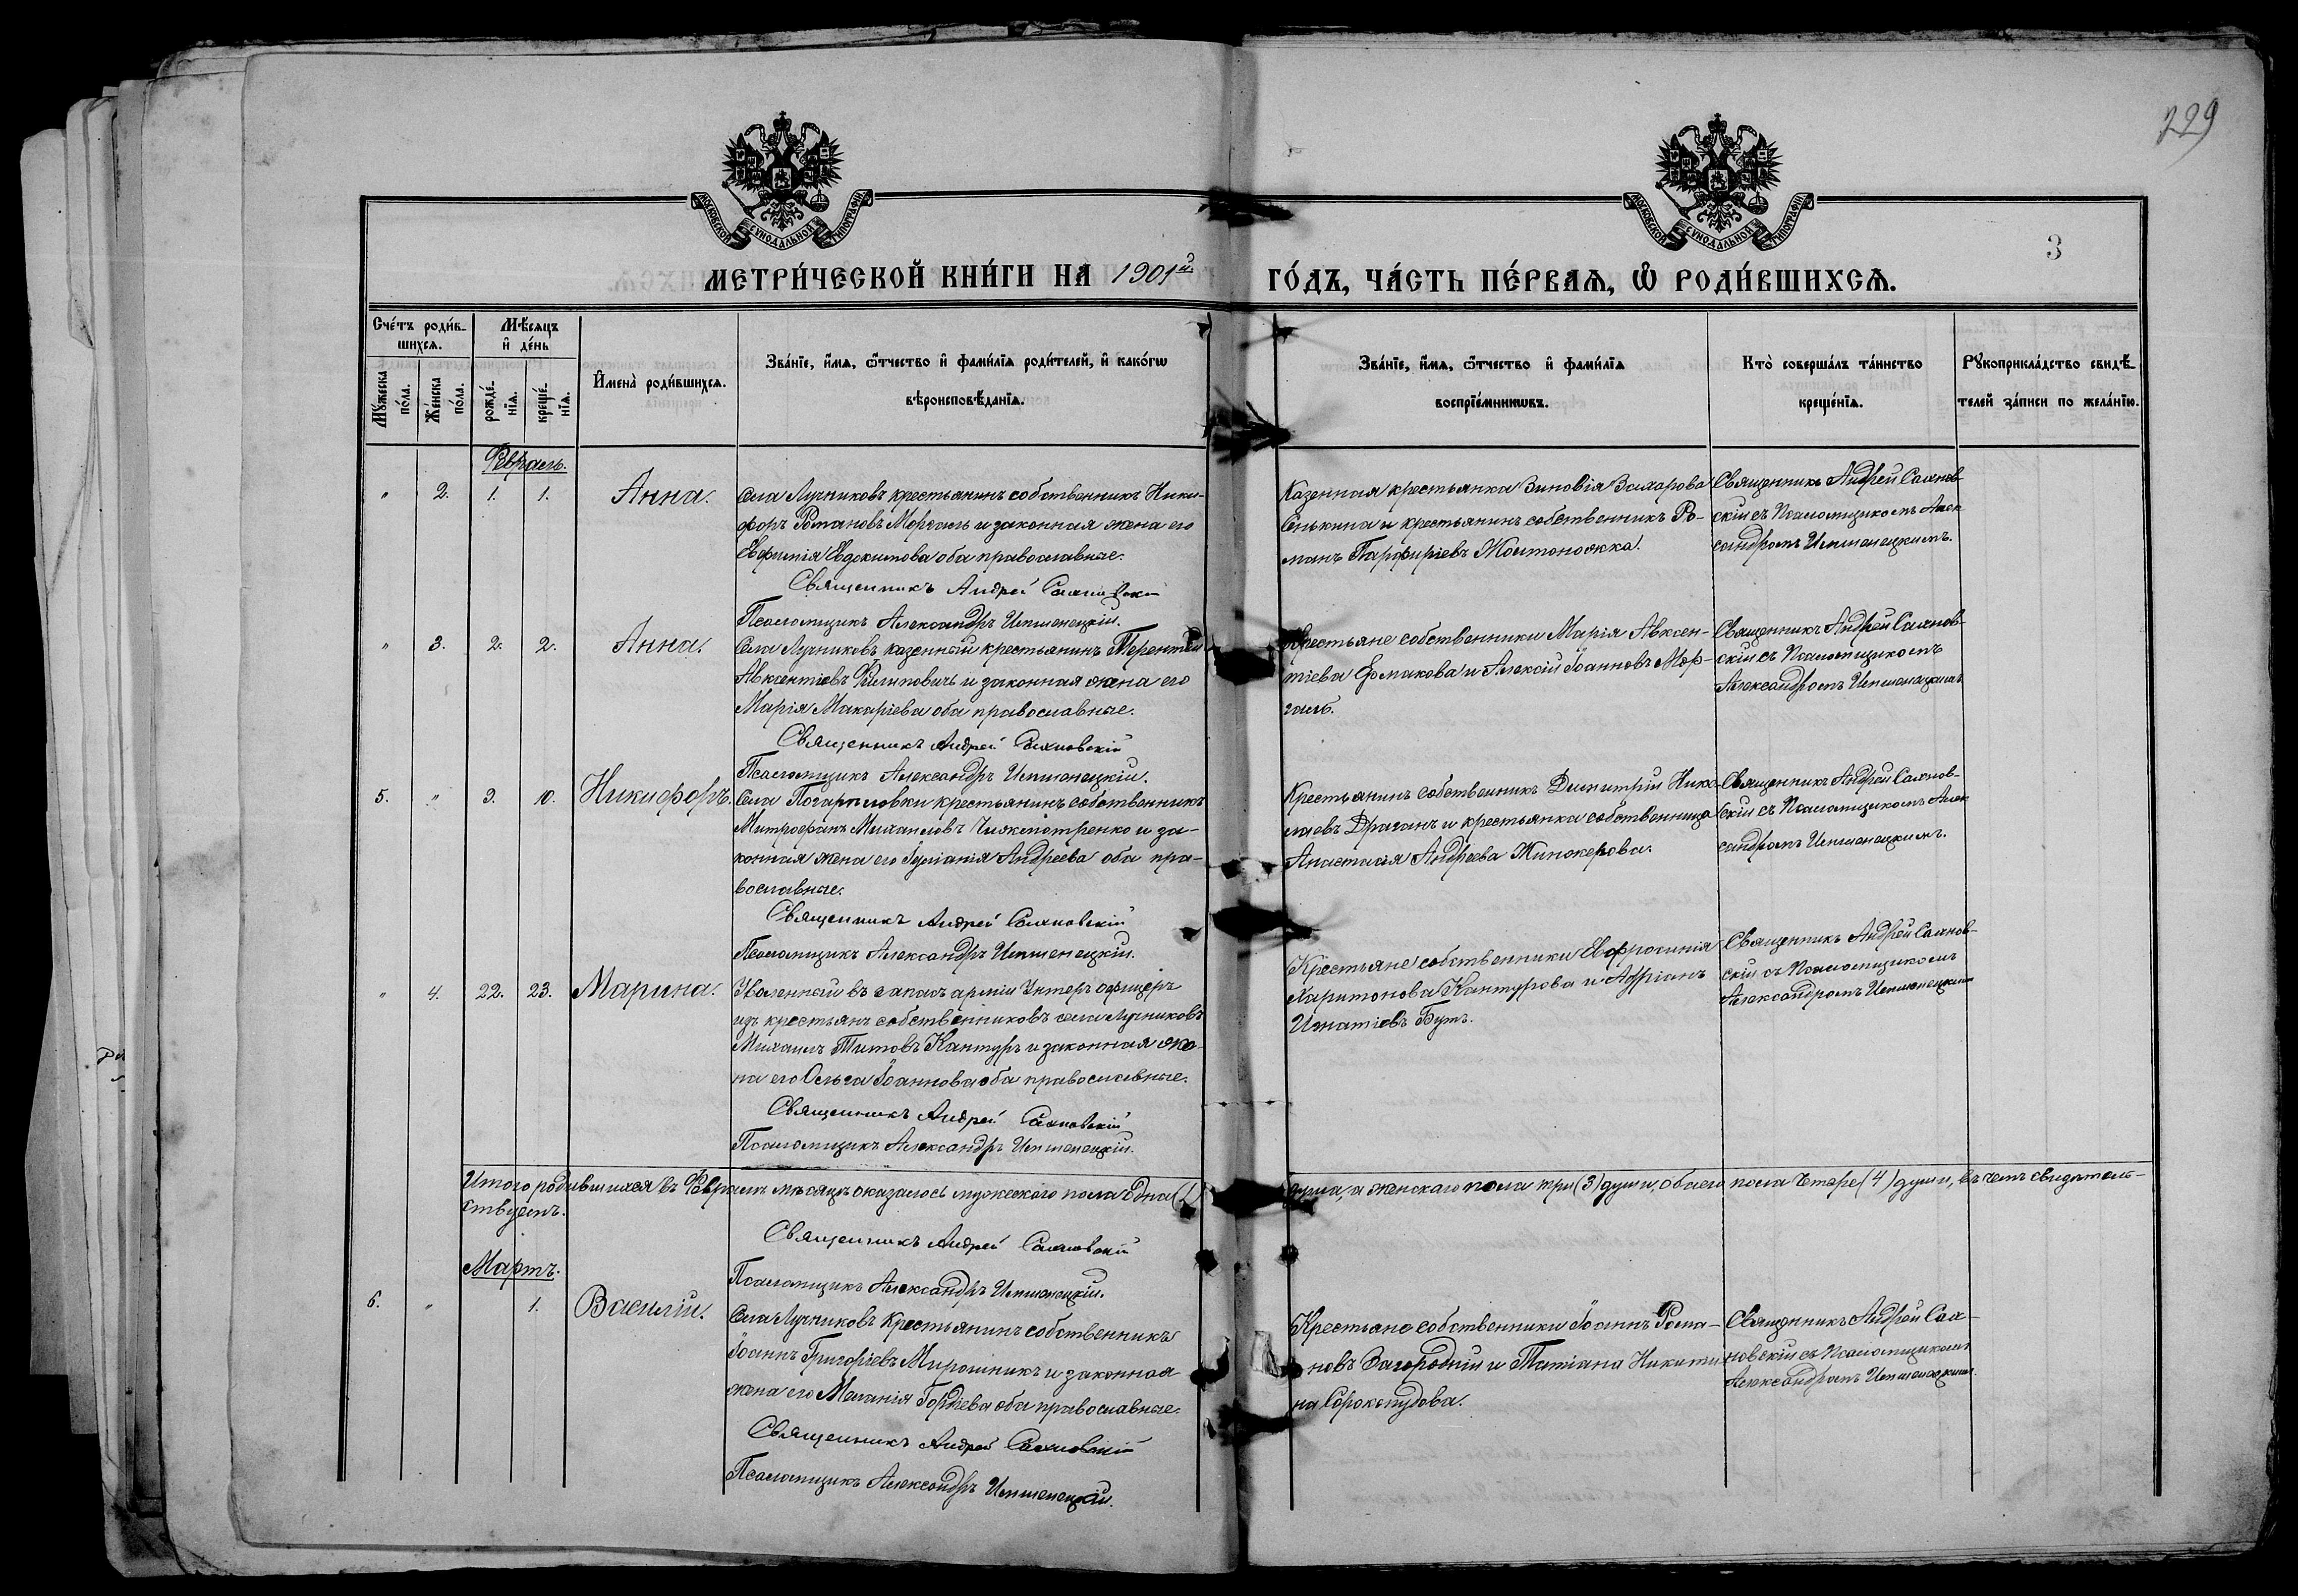 229
МОСКОВСКОЙ СѴНОДАЛЬНОЙ ТИПОГРАФІИ
МОСКОВСКОЙ СѴНОДАЛЬНОЙ ТИПОГРАФІИ
3
МЕТРИ́ЧЕСКОЙ КНИ́ГИ НА 1901й ГО́ДЪ, ЧА́СТЬ ПЕ́РВАѦ, Ѽ РОДИ́ВШИХСѦ.
Сче́тъ роди́в-
шихсѧ.
Мꙋ́жеска
по́ла.
Же́нска
по́ла.
Мѣ́сѧцъ
и҆ де́нь
рожде́-
нїѧ.
креще́-
нїѧ.
И҆мена̀ роди́вшихсѧ.
Зва́нїе, и҆́мѧ, ѻ҆́тчество и҆ фами́лїѧ роди́телей, и҆ како́гѡ
вѣроисповѣ́данїѧ.
Зва́нїе, и҆́мѧ, ѻ҆́тчество и҆ фами́лїѧ
воспрїе́мникѡвъ.
Кто̀ соверша́лъ та́инство
креще́нїѧ.
Рꙋкоприкла́дство свидѣ́-
телей за́писи по жела́нїю.
Февраль.
" 2. 1. 1. Анна.
Села Лучниковъ крестьянинъ собственникъ Ники-
форъ Романовъ Моргаль и законная жена его
Евфимія Евдокимова оба православные.
Священникъ Андрей Сахновскій
Псаломщикъ Александръ
Казенная крестьянка Зиновія Захарова
Сенькина и крестьянинъ собственникъ Ро-
манъ Парфиріевъ Жолтоножка.
Священникъ Андрей Сахнов-
скій съ Псаломщикомъ Алек
сандромъ
" 3. 2. 2. Анна.
Села Лучниковъ казенный крестьянинъ Терентій
Авксентіевъ Филиповичъ и законная жена его
Марія Макаріева оба православные.
Священникъ Андрей Сахновскій
Псаломщикъ Александръ
Крестьяне собственники Марія Авксен-
тіева Ермакова и Алексій Іоанновъ Мор-
галь.
Священникъ Андрей Сахнов-
скій съ Псаломщикомъ
Александромъ
5. " 9. 10. Никифоръ.
Села Погариловки крестьянинъ собственникъ
Митрофанъ Михаиловъ и за-
конная жена его Іуліанія Андреева оба пра-
вославные.
Священникъ Андрей Сахновскій
Псаломщикъ Александръ
Крестьянинъ собственникъ Димитрій Нико-
лаевъ Драганъ и крестьянка собственница
Анастасія Андреева
Священникъ Андрей Сахнов-
скій съ Псаломщикомъ Алек
сандромъ
" 4. 22. 23. Марина.
Уволенный въ запасъ арміи Унтеръ офицеръ
изъ крестьянъ собственниковъ села Лучниковъ
Михаилъ Титовъ Кантуръ и законная же-
на его Ольга Іоаннова оба православные.
Священникъ Андрей Сахновскій
Псаломщикъ Александръ
Крестьяне собственники Евфросинія
Харитонова Кантурова и Адріанъ
Игнатіевъ Бутъ.
Священникъ Андрей Сахнов-
скій съ Псаломщикомъ
Александромъ
Итого родившихся въ Февралѣ мѣсяцѣ оказалось мужескаго пола одна (1) душа, а женскаго пола три (3) души, обоего пола четыре (4) души, въ чемъ свидѣтель-
ствуемъ.
Священникъ Андрей Сахновскій
Псаломщикъ Александръ
Мартъ.
6. " 1. Василій.
Села Лучниковъ Крестьянинъ собственникъ
Іоаннъ Григоріевъ Мирошникъ и законная
жена его Меланія Гордіева оба православные.
Священникъ Андрей Сахновскій
Псаломщикъ Александръ
Крестьяне собственники Іоаннъ Рома-
новъ Загородній и Татіана Никити-
на Сорокопудова.
Священникъ Андрей Сах-
новскій съ Псаломщикомъ
Александромъ